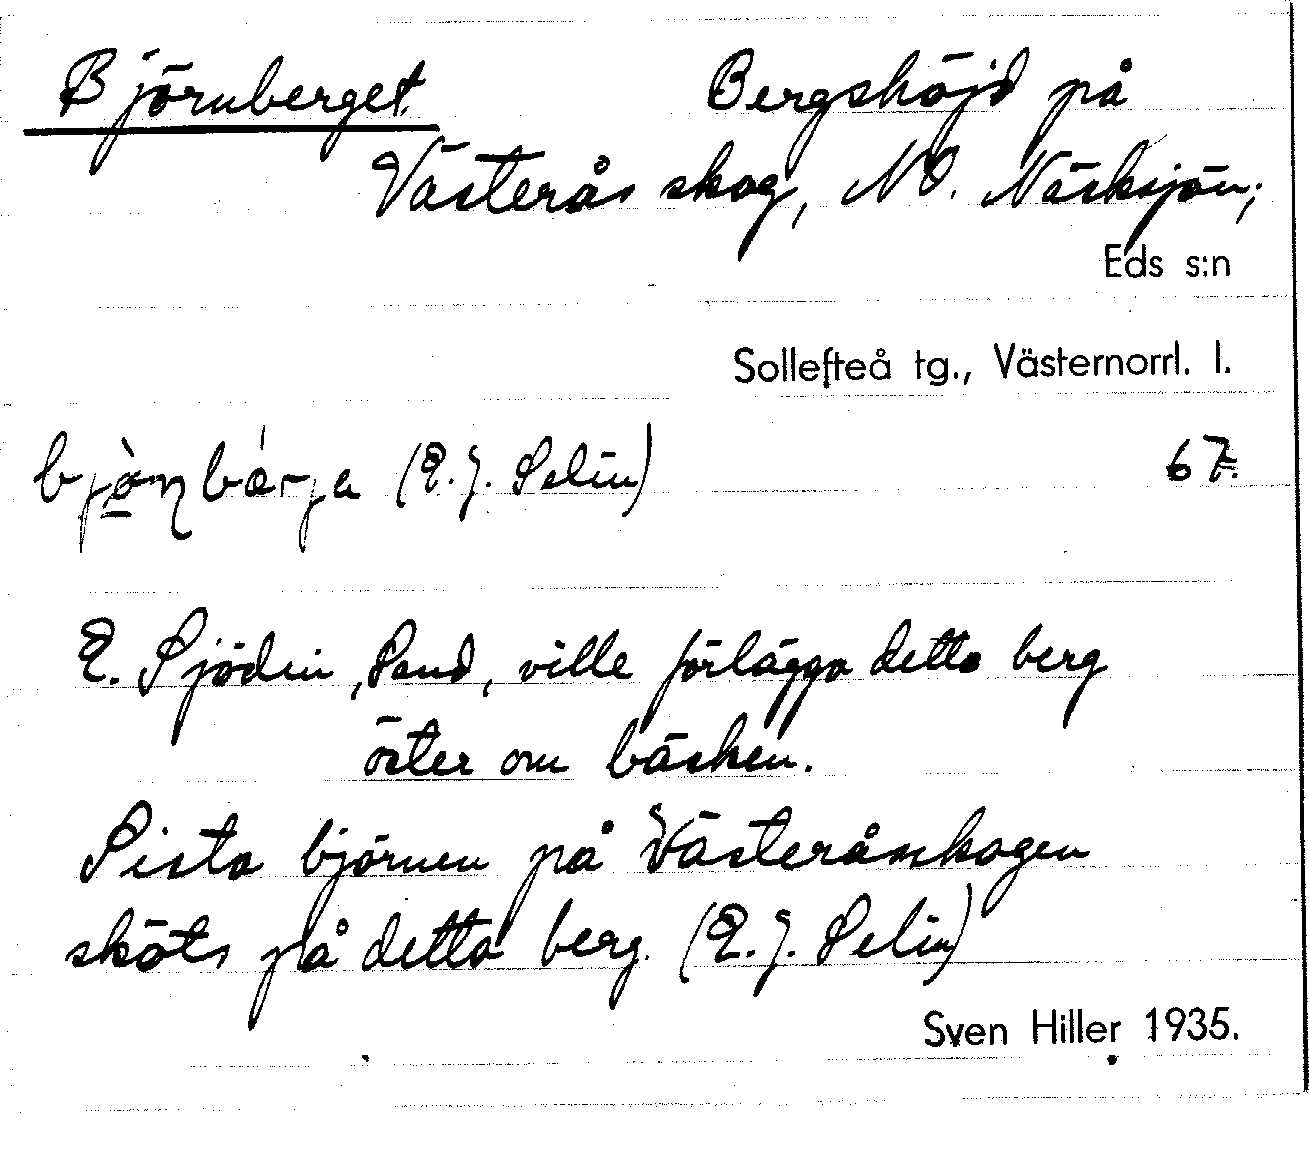 Björnberget. Bergshöjd på
Västerås skog, NO. Näsksjön;
Eds s:n
Sollefteå tg., Västernorrl. l.
(E. J. Selin) 67.
E. Sjödin, Sand, ville förlägga detta berg
öster om bäcken.
Sista björnen på Västeråsskogen
sköts på detta berg. (E. J. Selin)
Sven Hiller 1935.